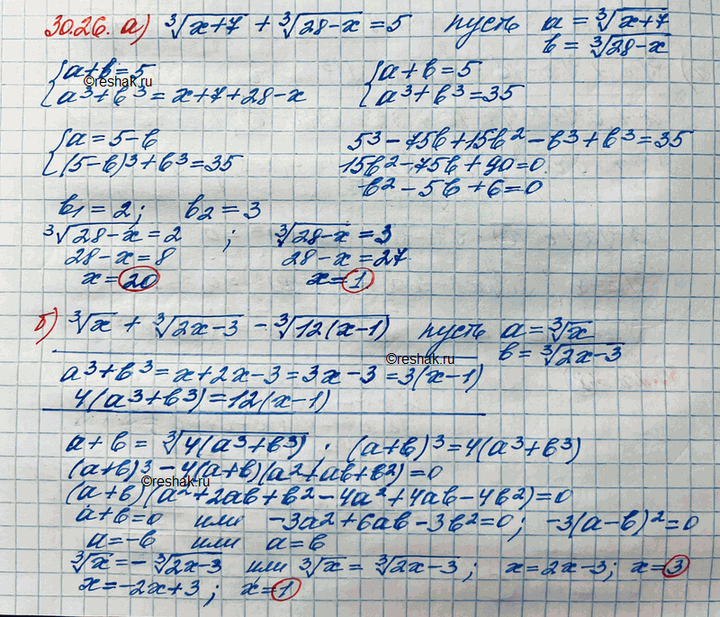 30.26. а) ∛(x+7) + ∛(28-x) = 5 пусть a = ∛(x+7)
b = ∛(28-x)
{a+b=5 {a+b=5
©reshak.ru
a³+b³=x+7+28-x a³+b³=35
{a=5-b 5³-75b+15b²-b³+b³=35
(5-b)³+b³=35 15b²-75b+90=0
b²-5b+6=0
b₁=2; b₂=3
∛(28-x)=2 ; ∛(28-x)=3
28-x=8 28-x=27
x=20 x=1
б) ∛x + ∛(2x-3) - ∛(12(x-1)) пусть a=∛x
©reshak.ru
b=∛(2x-3)
a³+b³=x+2x-3=3x-3=3(x-1)
4(a³+b³)=12(x-1)
a+b=∛(4(a³+b³)); (a+b)³=4(a³+b³)
(a+b)³-4(a+b)(a²+ab+b²)=0
©reshak.ru
(a+b)(a²+2ab+b²-4a²+4ab-4b²)=0
a+b=0 или -3a²+6ab-3b²=0; -3(a-b)²=0
a=-b или a=b
∛x=-∛(2x-3) или ∛x=∛(2x-3); x=2x-3; x=3
x=-2x+3; x=1